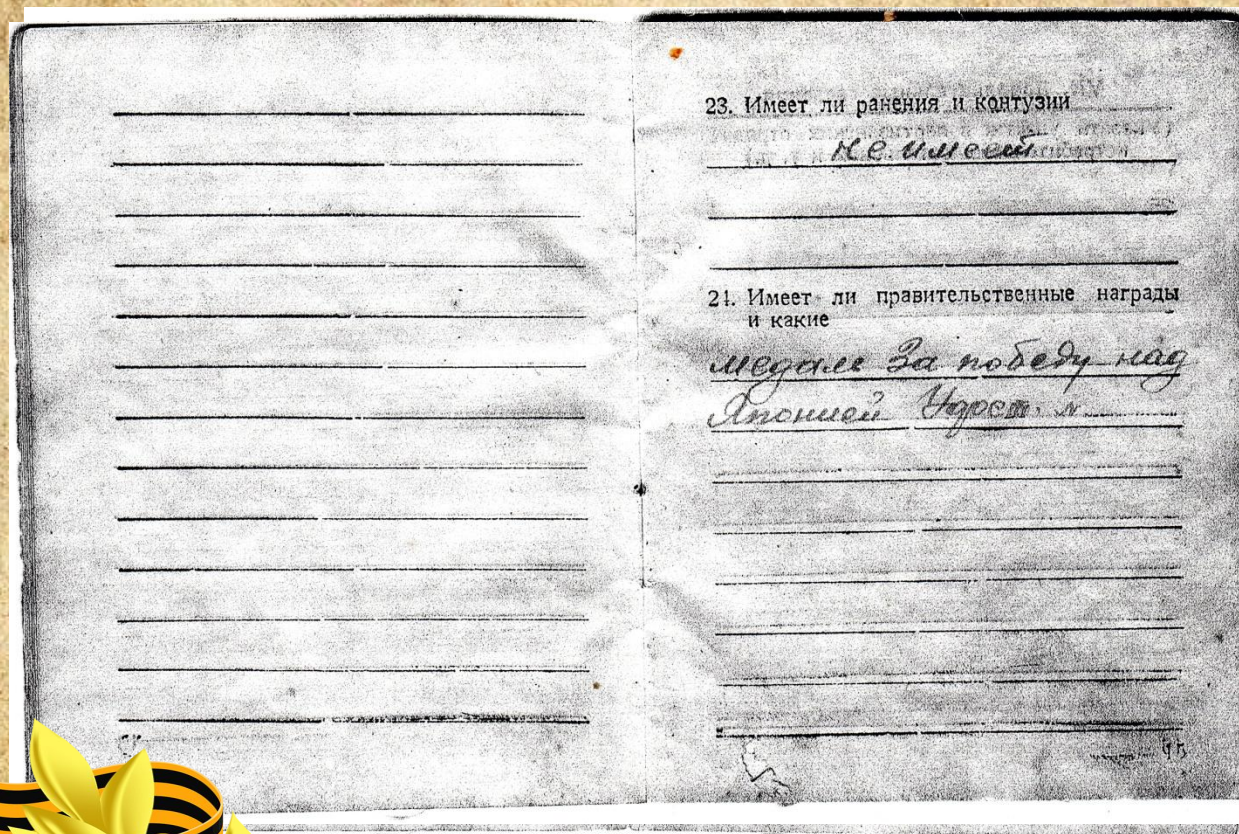 23. Имеет ли ранения и контузии
не имеет
24. Имеет ли правительственные награды
и какие
медаль За победу над
Японией Удост. №